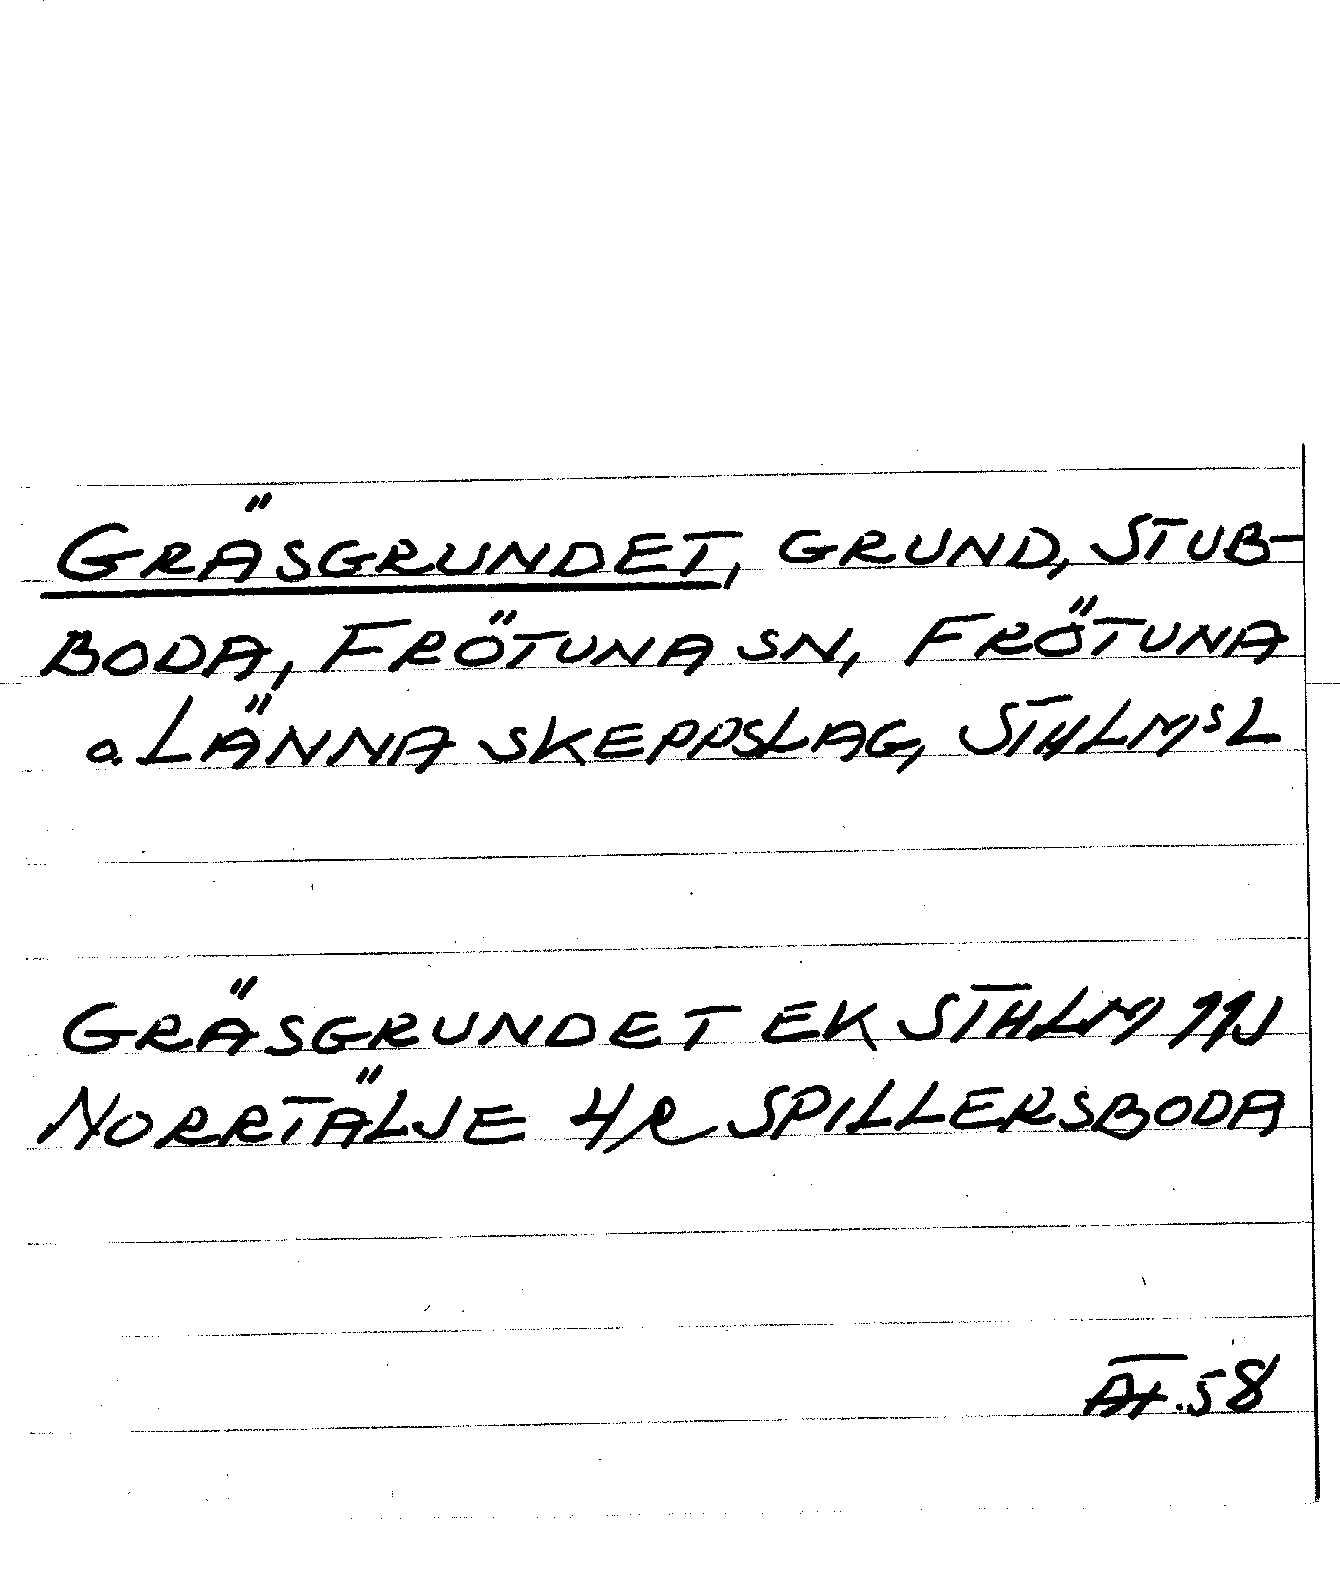 GRÄSGRUNDET, GRUND, STUB-
BODA, FRÖTUNA SN, FRÖTUNA
o. LÄNNA SKEPPSLAG, STHLMS L
GRÄSGRUNDET EK STHLM 11J
NORRTÄLJE 4/R SPILLERSBODA
58